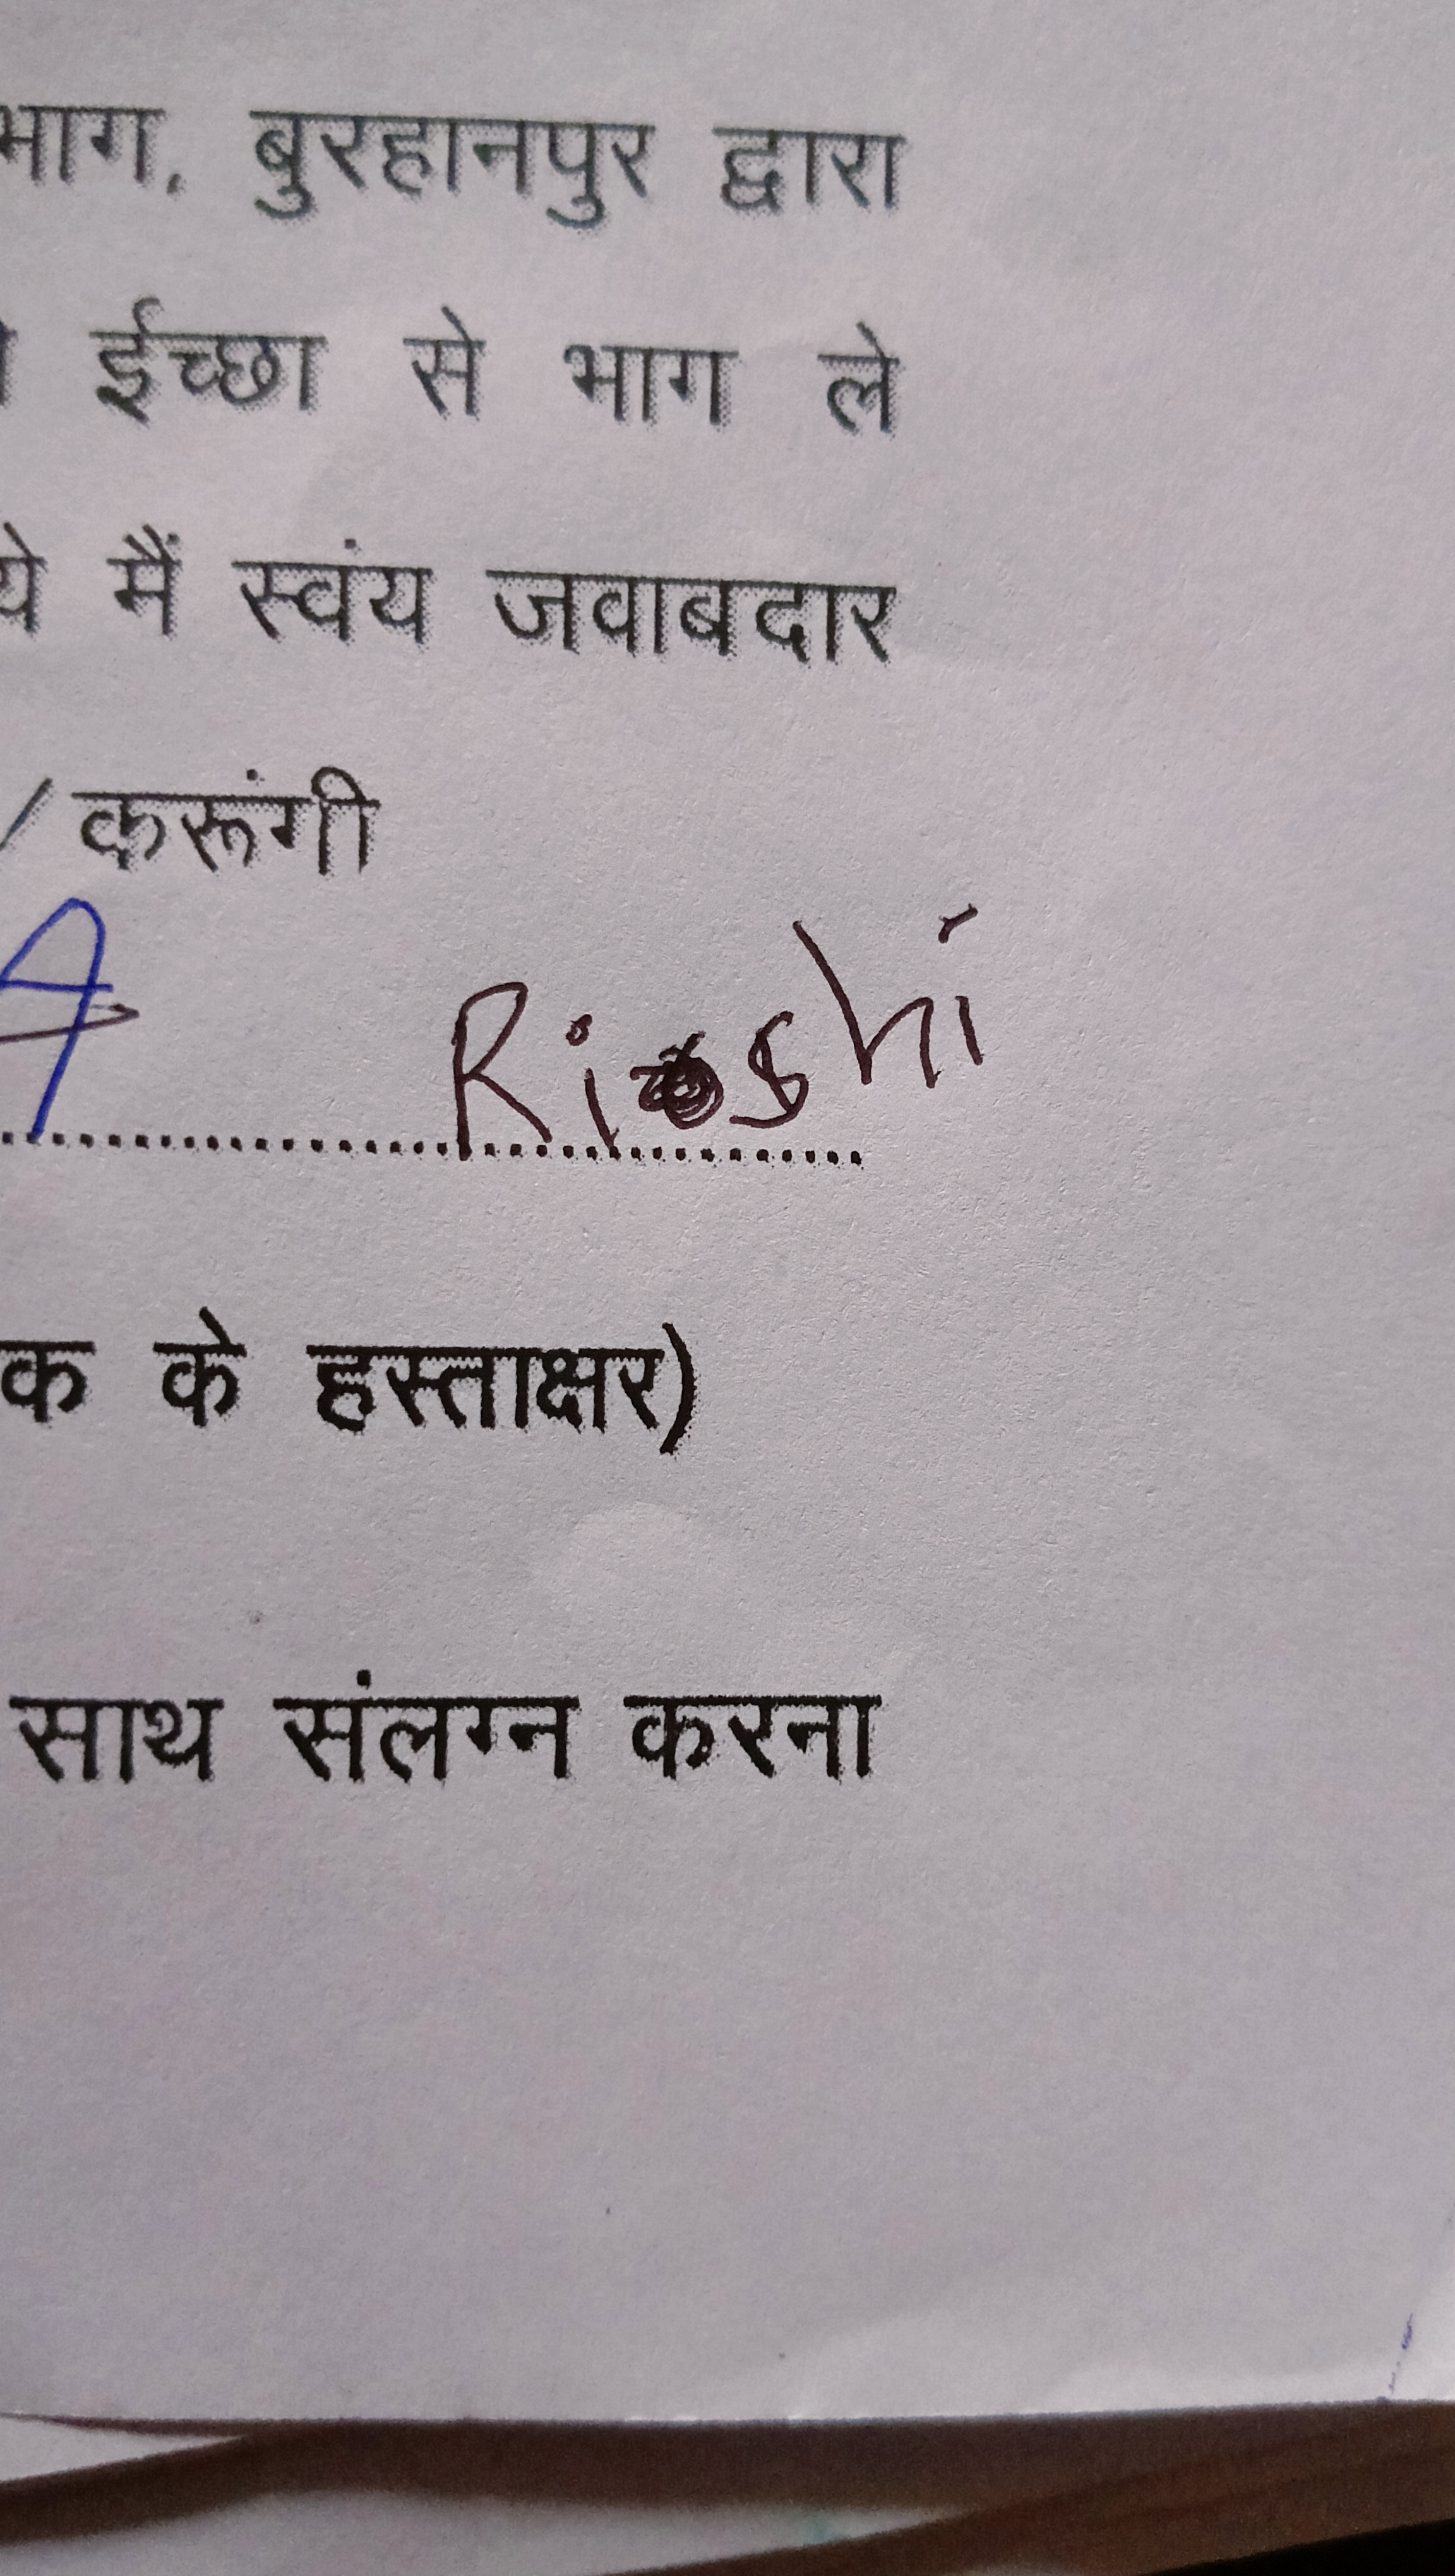 भाग, बुरहानपुर द्वारा
ईच्छा से भाग ले
ये मैं स्वंय जवाबदार
/करूंगी
A Rishi
क के हस्ताक्षर)
साथ संलग्न करना